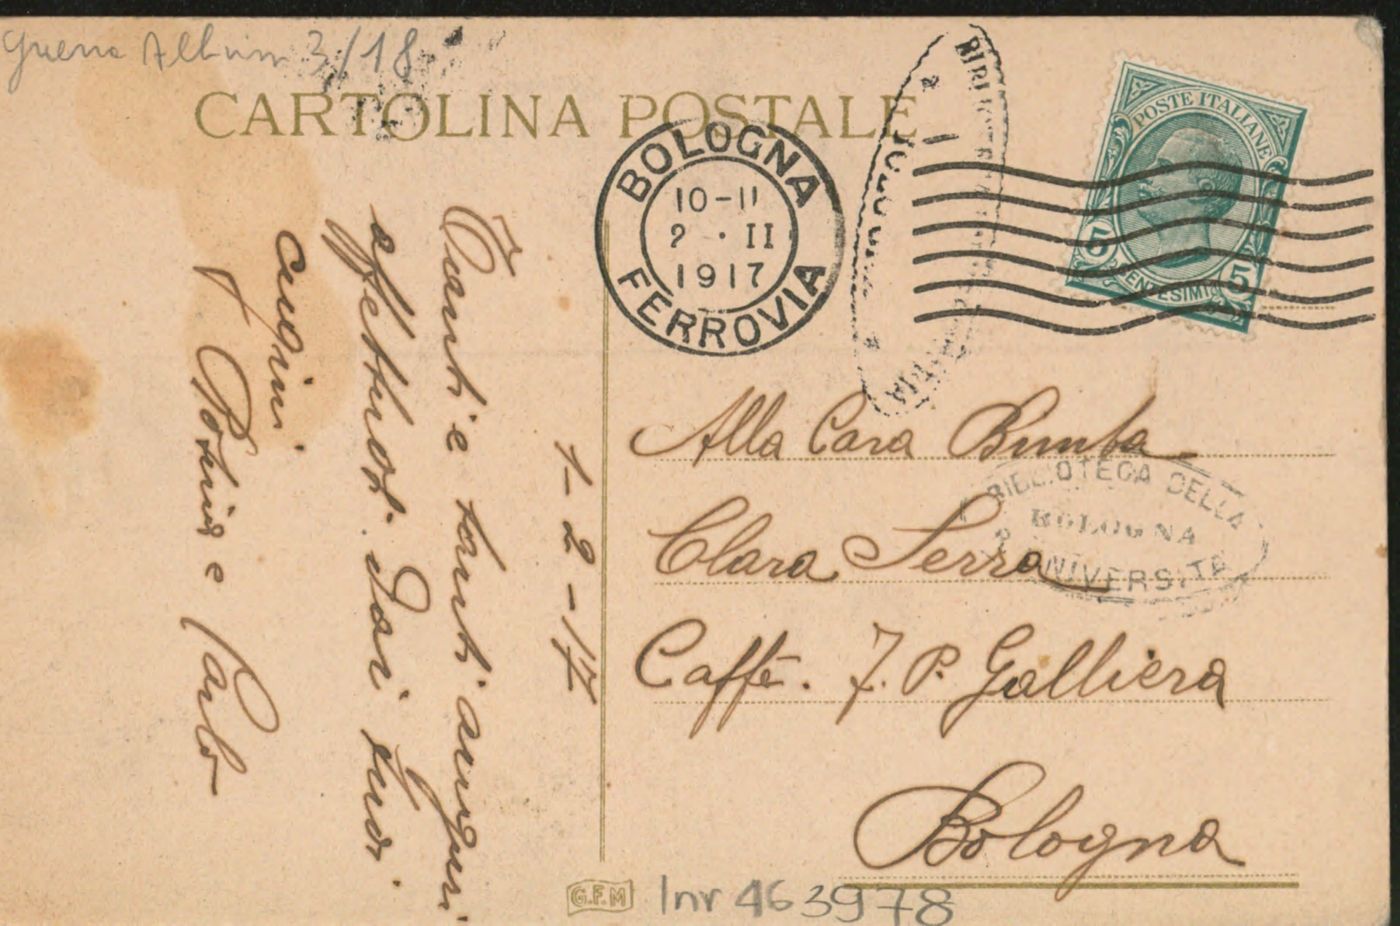 Guerra Album 3/18
CARTOLINA POSTALE
BOLOGNA
10-11
2 · II
1917
FERROVIA
POSTE ITALIANE
5 CENTESIMI 5
Tanti e tanti auguri
affettuosi dai suoi
cugini
e Carlo
1-2-17
Alla Cara Bimba
Clara Serra
Caffè. F. P. Galliera
Bologna
BIBLIOTECA DELLA
BOLOGNA
UNIVERSITÀ
G.F.M
Inv 463978